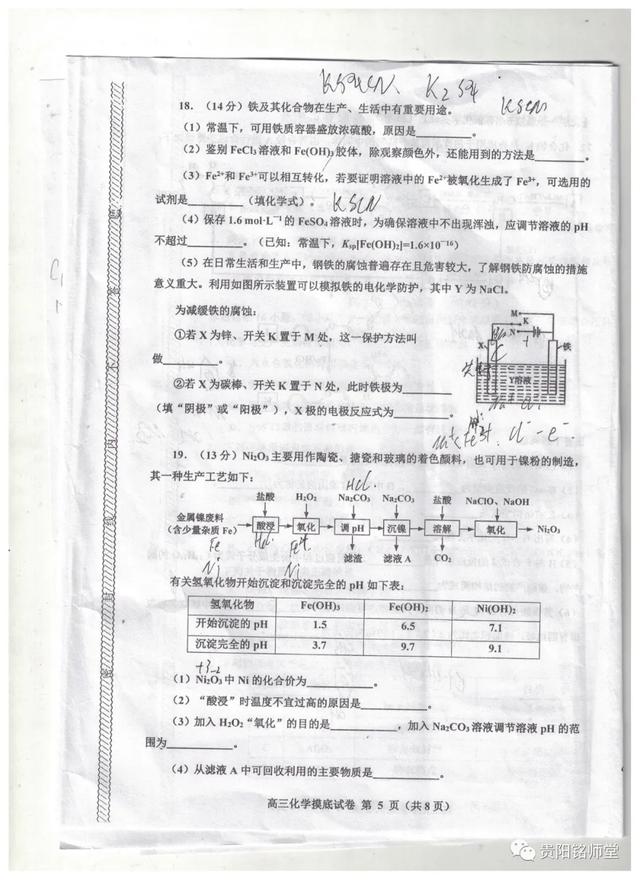 KSCN K2SO4
KSCN
18．（14分）铁及其化合物在生产、生活中有重要用途。
（1）常温下，可用铁质容器盛放浓硫酸，原因是________。
（2）鉴别 FeCl₃ 溶液和 Fe(OH)₃ 胶体，除观察颜色外，还能用到的方法是________。
（3）Fe²⁺和 Fe³⁺可以相互转化，若要证明溶液中的 Fe²⁺被氧化生成了 Fe³⁺，可选用的
试剂是________（填化学式）。 KSCN
（4）保存 1.6 mol·L⁻¹ 的 FeSO₄ 溶液时，为确保溶液中不出现浑浊，应调节溶液的 pH
不超过________。（已知：常温下，Ksp[Fe(OH)₂]=1.6×10⁻¹⁶）
（5）在日常生活和生产中，钢铁的腐蚀普遍存在且危害较大，了解钢铁防腐蚀的措施
意义重大。利用如图所示装置可以模拟铁的电化学防护，其中 Y 为 NaCl。
为减缓铁的腐蚀：
①若 X 为锌、开关 K 置于 M 处，这一保护方法叫
做________。
②若 X 为碳棒、开关 K 置于 N 处，此时铁极为________
（填“阴极”或“阳极”），X 极的电极反应式为________。
M
K
N
X
铁
Y溶液
Cl⁻ - e⁻
19．（13分）Ni₂O₃ 主要用作陶瓷、搪瓷和玻璃的着色颜料，也可用于镍粉的制造，
其一种生产工艺如下：
HCl
盐酸 H₂O₂ Na₂CO₃ Na₂CO₃ 盐酸 NaClO、NaOH
金属镍废料
（含少量杂质 Fe） 酸浸 氧化 调 pH 沉镍 溶解 氧化 Ni₂O₃
滤渣 滤液 A CO₂
Fe
Ni Ni
有关氢氧化物开始沉淀和沉淀完全的 pH 如下表：
氢氧化物 Fe(OH)₃ Fe(OH)₂ Ni(OH)₂
开始沉淀的 pH 1.5 6.5 7.1
沉淀完全的 pH 3.7 9.7 9.1
+3 -2
（1）Ni₂O₃ 中 Ni 的化合价为________。
（2）“酸浸”时温度不宜过高的原因是________。
（3）加入 H₂O₂“氧化”的目的是________，加入 Na₂CO₃ 溶液调节溶液 pH 的范
围为________。
（4）从滤液 A 中可回收利用的主要物质是________。
高三化学摸底试卷 第 5 页（共 8 页）
贵阳铭师堂